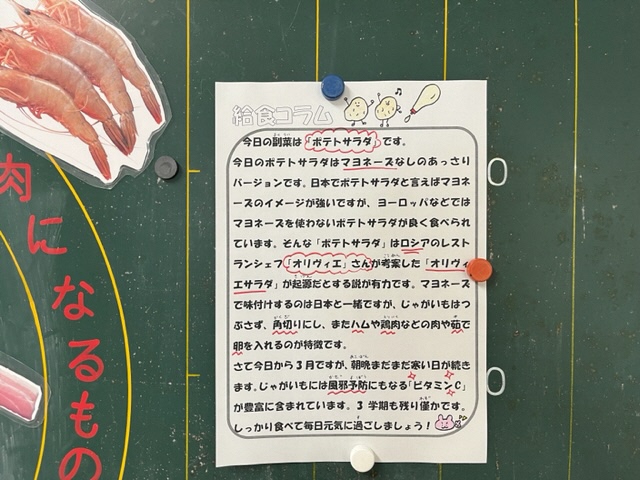 給食コラム
今日の副菜は「ポテトサラダ」です。
今日のポテトサラダはマヨネーズなしのあっさり
バージョンです。日本でポテトサラダと言えばマヨネ
ーズのイメージが強いですが、ヨーロッパなどでは
マヨネーズを使わないポテトサラダが良く食べられ
ています。そんな「ポテトサラダ」はロシアのレスト
ランシェフ「オリヴィエ」さんが考案した「オリヴィ
エサラダ」が起源だとする説が有力です。マヨネーズ
で味付けするのは日本と一緒ですが、じゃがいもはつ
ぶさず、角切りにし、またハムや鶏肉などの肉や茹で
卵を入れるのが特徴です。
さて今日から3月ですが、朝晩まだまだ寒い日が続き
ます。じゃがいもには風邪予防にもなる「ビタミンC」
が豊富に含まれています。3学期も残り僅かです。
しっかり食べて毎日元気に過ごしましょう！
肉になるもの